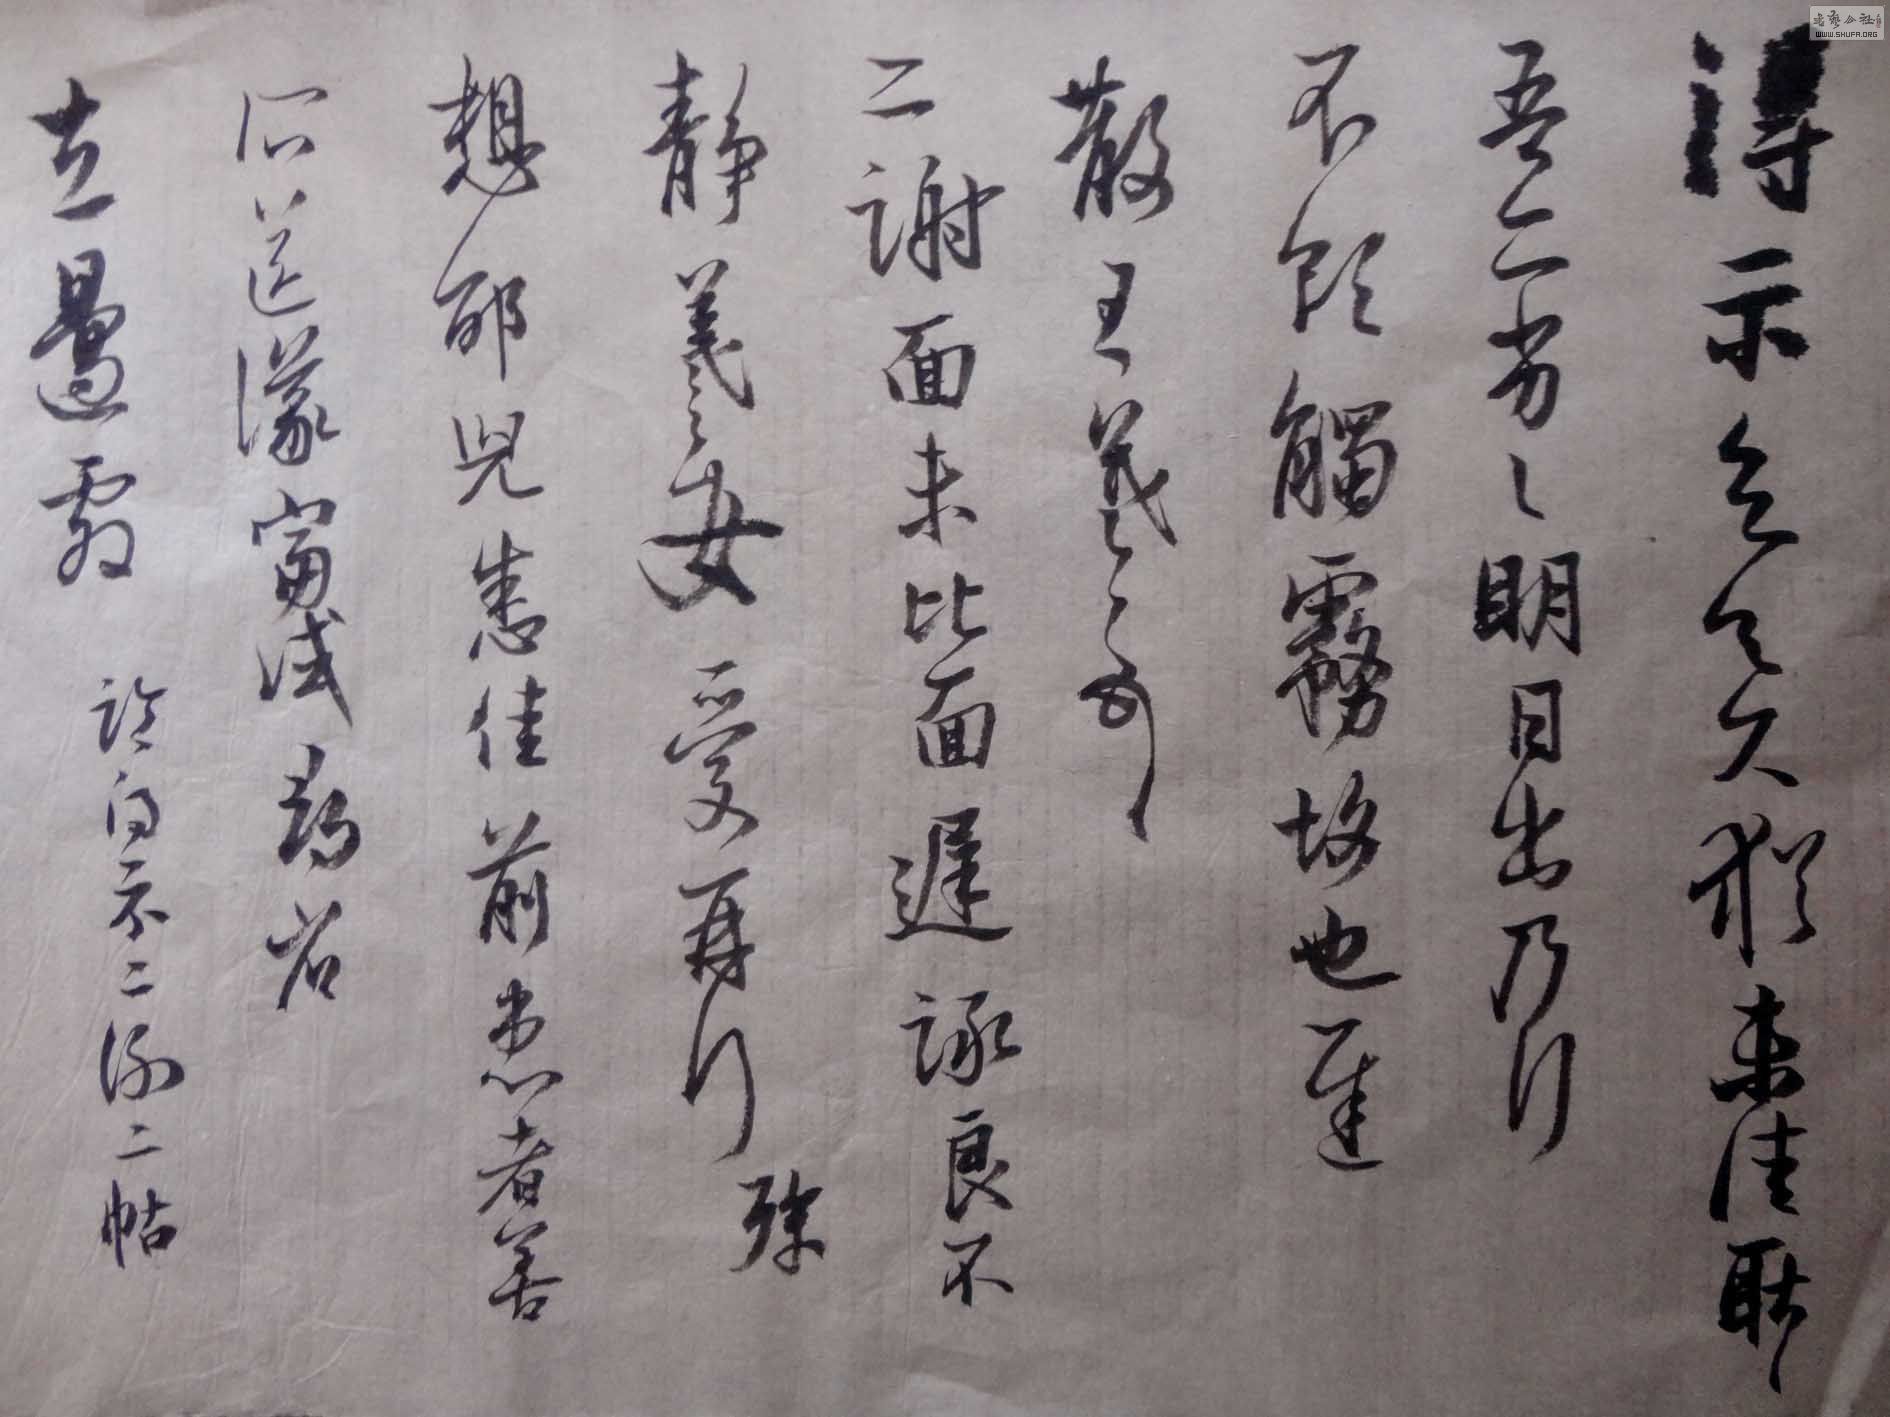 得示知足下猶未佳耿
吾亦劣々明日出乃行
不欲觸霧故也遲
散王羲之頓首
二謝面未比面遲詠良不
靜羲之女愛再拜
想邰兒悉佳前患者善
所送議當試尋省
左邊劇
臨得示二謝二帖
書藝公社
WWW.SHUFA.ORG